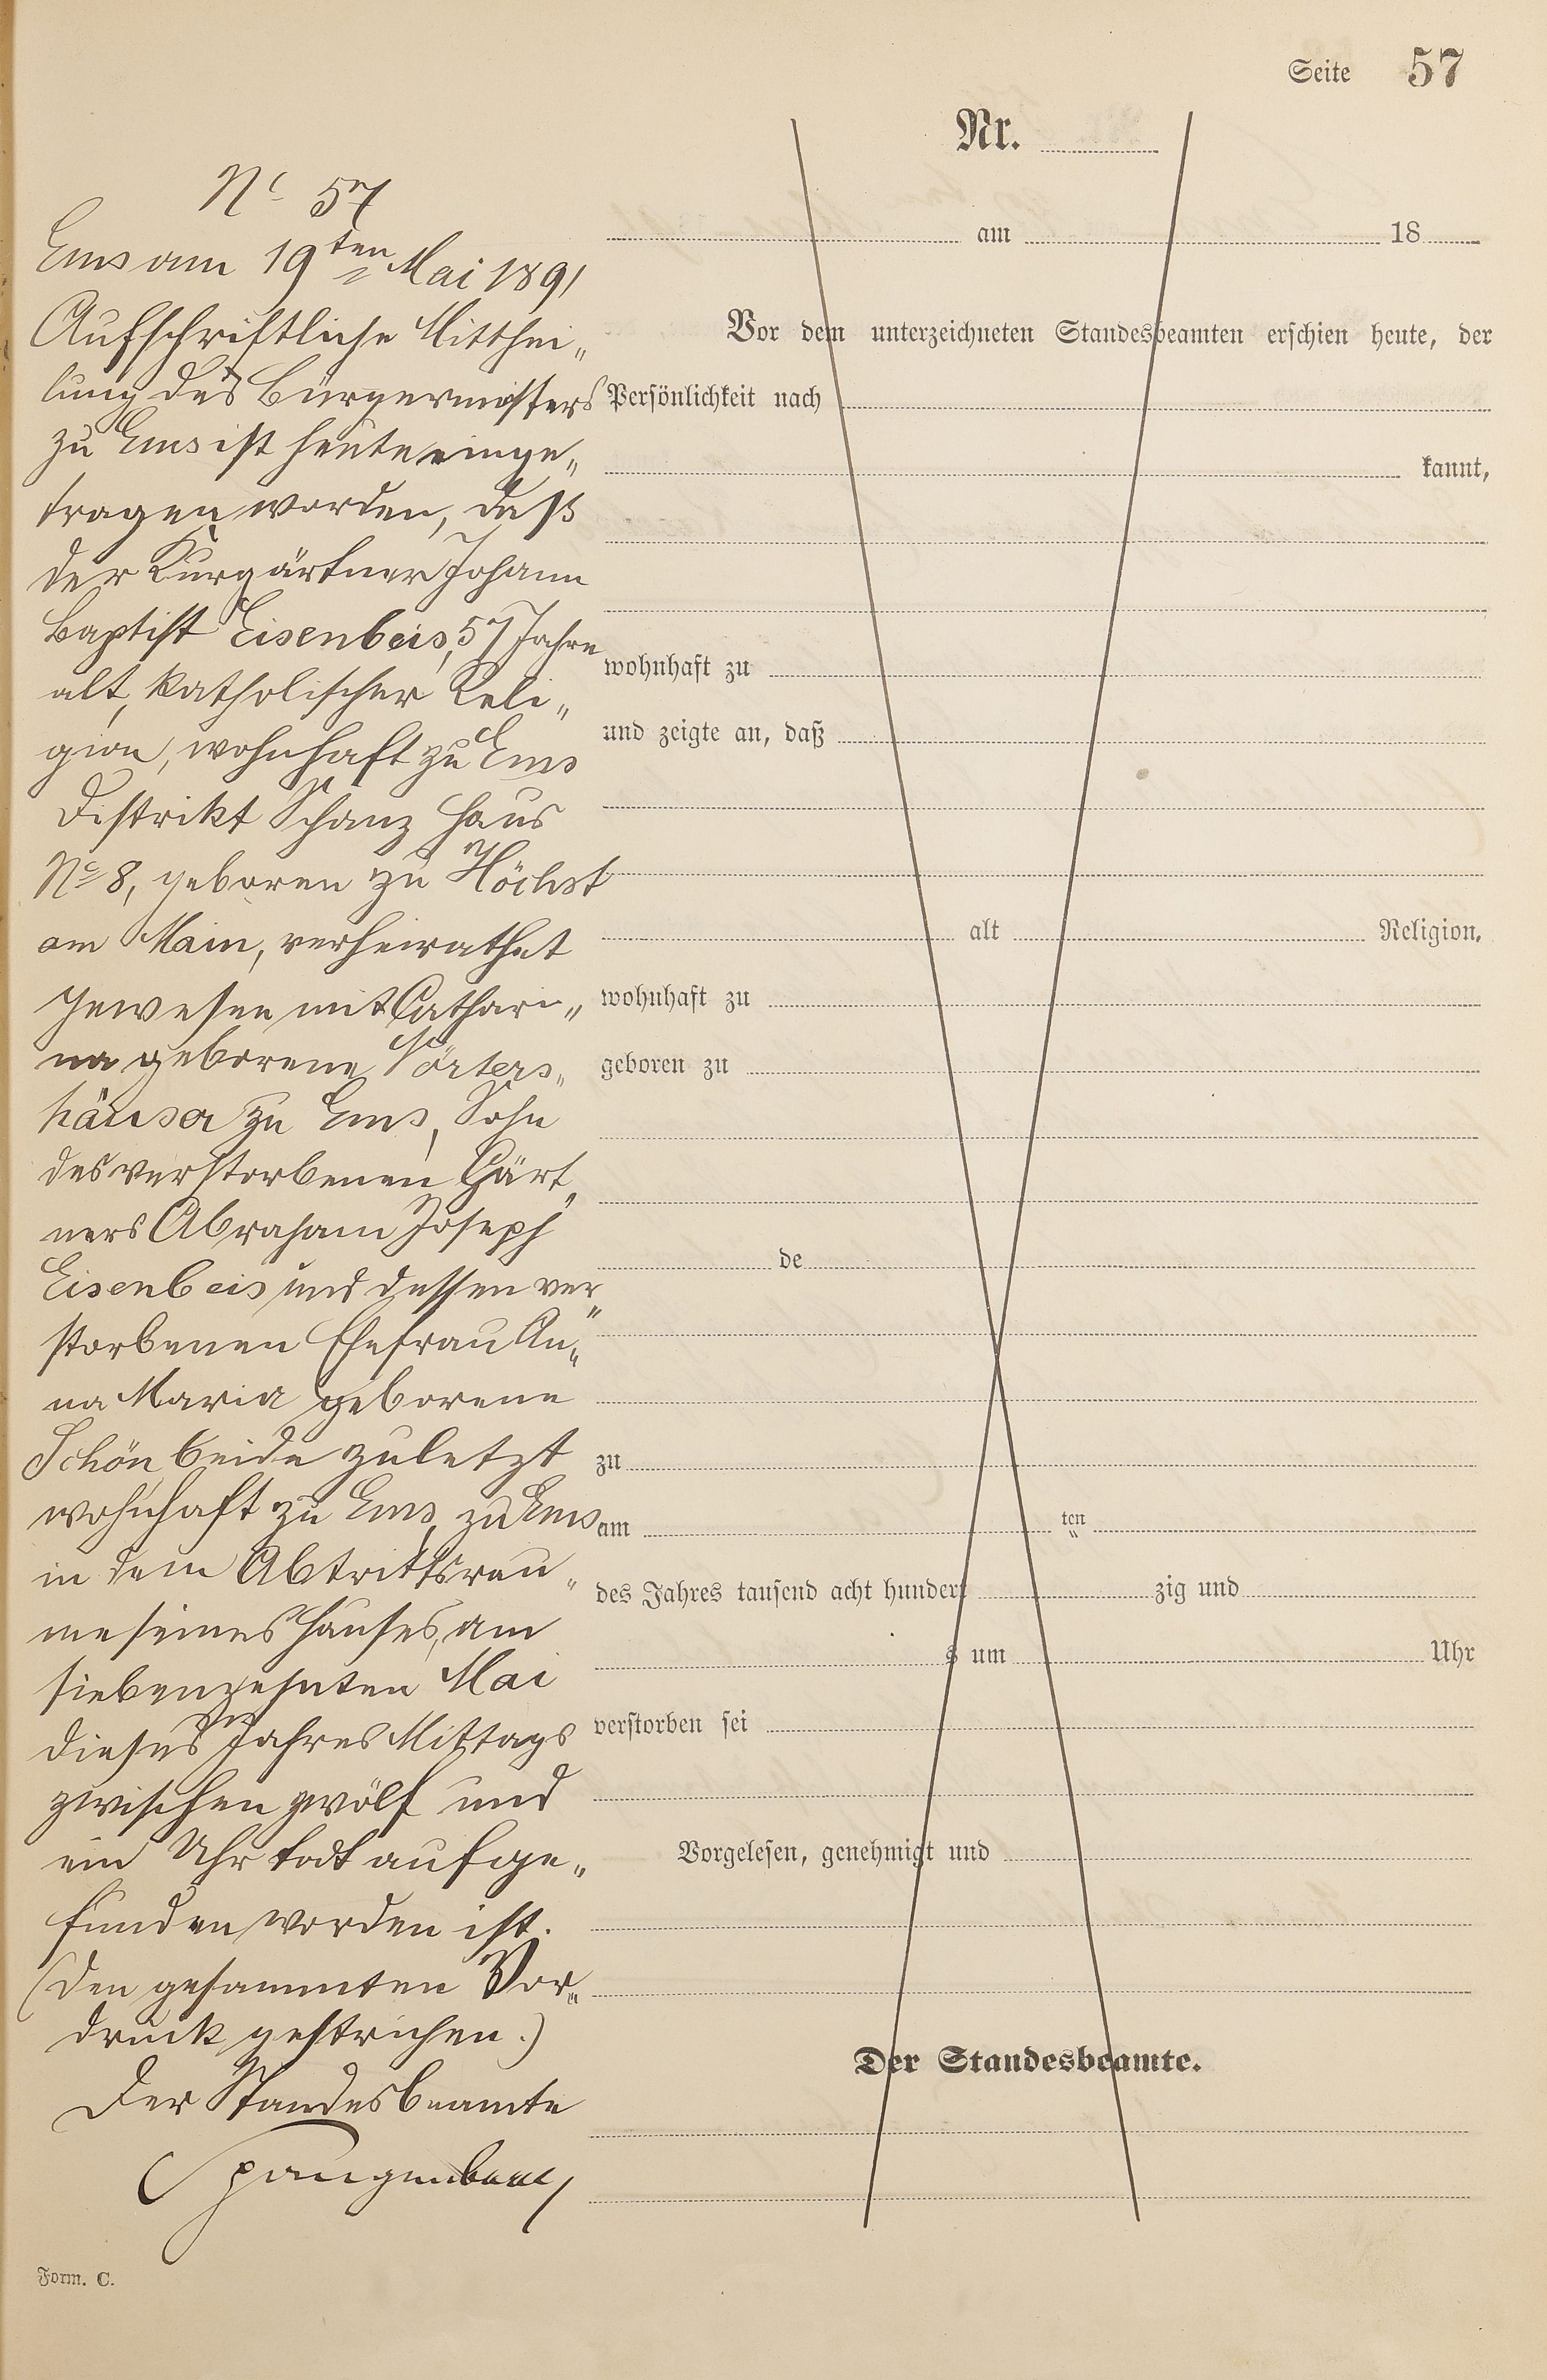 Seite 57
Nr.
Nº 57
Ems am 19ten Mai 1891
Auf schriftliche Mitthei„
lung des Bürgermeisters
zu Ems ist heute einge„
tragen worden, daß
der Kurgärtner Johann
Baptist Eisenbeis, 57 Jahre
alt, katholischer Reli„
gion, wohnhaft zu Ems
Distrikt Schanz Haus
Nº 8, geboren zu Höchst
am Main, verheirathet
gewesen mit Cathari„
na geborene Sörters„
häuser zu Ems, Sohn
des verstorbenen Gärt„
ners Abraham Joseph
Eisenbeis und dessen ver„
storbenen Ehefrau An„
na Maria geborene
Schön beide zuletzt
wohnhaft zu Ems, zu Ems
in dem Abtrittsrau„
me seines Hauses, am
siebenzehnten Mai
dieses Jahres Mittags
zwischen zwölf und
ein Uhr todt aufge„
funden worden ist.
(Den gesammten Vor„
druck gestrichen.)
Der Standesbeamte
Spangenberg
am 18
Vor dem unterzeichneten Standesbeamten erschien heute, der
Persönlichkeit nach
kannt,
wohnhaft zu
und zeigte an, daß
alt Religion,
wohnhaft zu
geboren zu
de
zu
am ten
des Jahres tausend acht hundert zig und
s um Uhr
verstorben sei
Vorgelesen, genehmigt und
Der Standesbeamte.
Form. C.